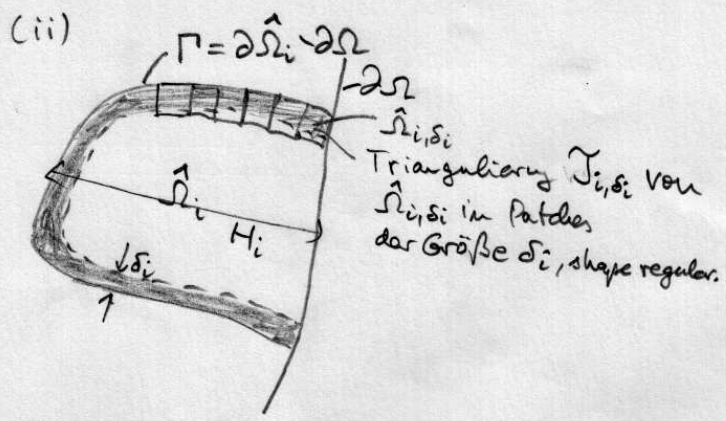 (ii)
Γ = ∂Ω̂ᵢ \ ∂Ω
∂Ω
Ω̂ᵢ,δᵢ
Triangulierung 𝒯ᵢ,δᵢ von
Ω̂ᵢ,δᵢ in Patches
der Größe δᵢ, shape regular.
Ω̂ᵢ
Hᵢ
δᵢ